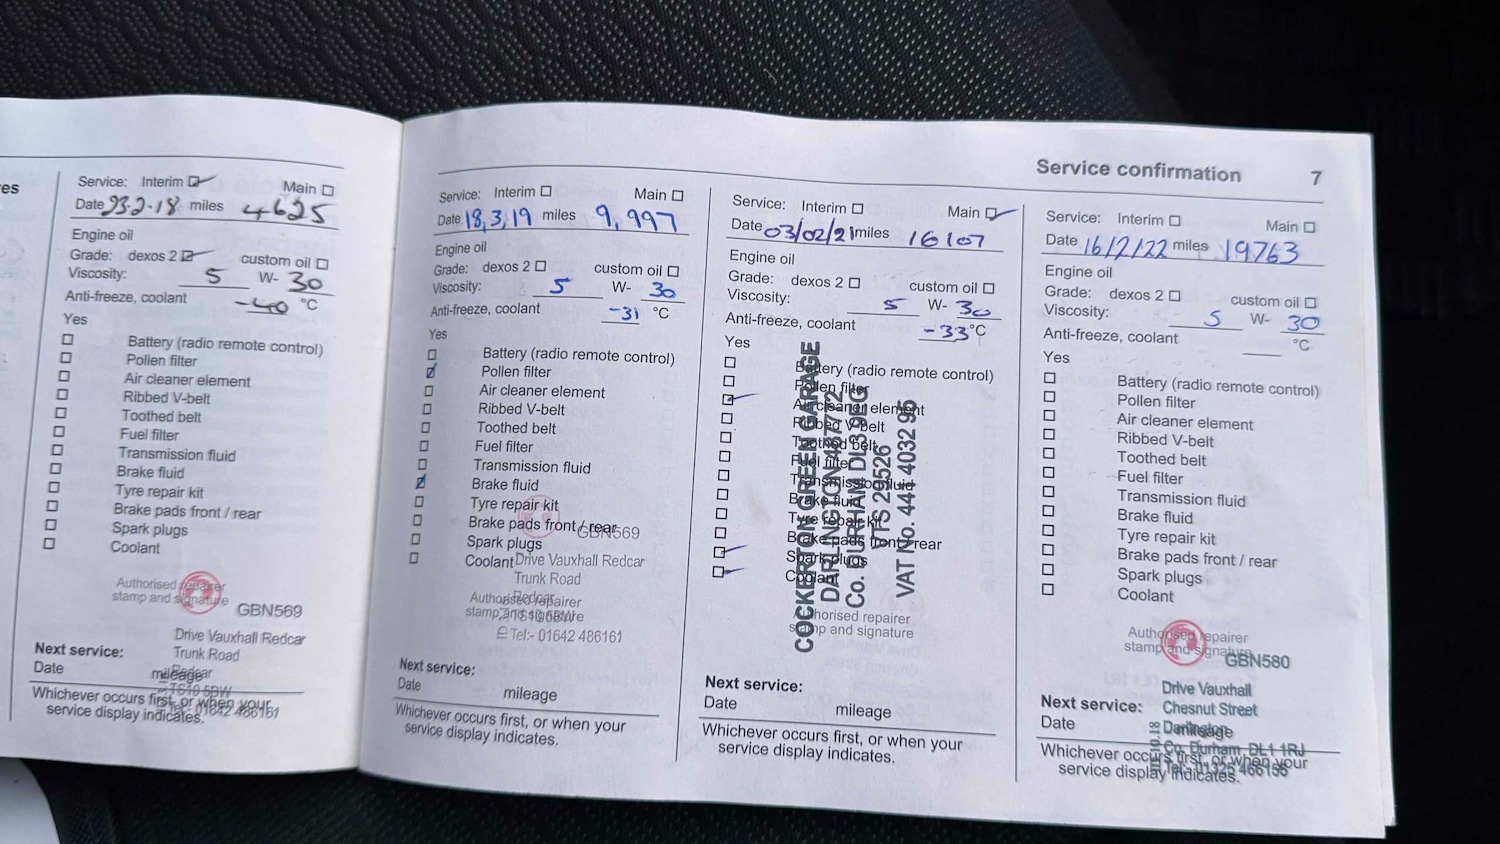 es
Service: Interim Main
Date 23·2·18 miles 4625
Engine oil
Grade: dexos 2 custom oil
Viscosity: 5 W- 30
Anti-freeze, coolant -40 °C
Yes
Battery (radio remote control)
Pollen filter
Air cleaner element
Ribbed V-belt
Toothed belt
Fuel filter
Transmission fluid
Brake fluid
Tyre repair kit
Brake pads front / rear
Spark plugs
Coolant
Authorised repairer
stamp and signature
GBN569
Drive Vauxhall Redcar
Trunk Road
Redcar
TS10 5BW
Tel:- 01642 486161
Next service:
Date mileage
Whichever occurs first, or when your
service display indicates.
Service confirmation 7
Service: Interim Main
Date 18,3,19 miles 9,997
Engine oil
Grade: dexos 2 custom oil
Viscosity: 5 W- 30
Anti-freeze, coolant -31 °C
Yes
Battery (radio remote control)
Pollen filter
Air cleaner element
Ribbed V-belt
Toothed belt
Fuel filter
Transmission fluid
Brake fluid
Tyre repair kit
Brake pads front / rear
Spark plugs
Coolant
GBN569
Drive Vauxhall Redcar
Trunk Road
Redcar
TS10 5BW
Tel:- 01642 486161
Authorised repairer
stamp and signature
Next service:
Date mileage
Whichever occurs first, or when your
service display indicates.
Service: Interim Main
Date 03/02/21 miles 16107
Engine oil
Grade: dexos 2 custom oil
Viscosity: 5 W- 30
Anti-freeze, coolant -33 °C
Yes
Battery (radio remote control)
Pollen filter
Air cleaner element
Ribbed V-belt
Toothed belt
Fuel filter
Transmission fluid
Brake fluid
Tyre repair kit
Brake pads front / rear
Spark plugs
Coolant
COCKERTON GREEN GARAGE
DARLINGTON
Co. DURHAM
VTS 29526
VAT No. 444 4032 95
Authorised repairer
stamp and signature
Next service:
Date mileage
Whichever occurs first, or when your
service display indicates.
Service: Interim Main
Date 16/2/22 miles 19763
Engine oil
Grade: dexos 2 custom oil
Viscosity: 5 W- 30
Anti-freeze, coolant °C
Yes
Battery (radio remote control)
Pollen filter
Air cleaner element
Ribbed V-belt
Toothed belt
Fuel filter
Transmission fluid
Brake fluid
Tyre repair kit
Brake pads front / rear
Spark plugs
Coolant
Authorised repairer
stamp and signature
GBN580
Drive Vauxhall
Chesnut Street
Darlington
Co. Durham DL1 1RJ
Tel:- 01325 466155
Next service:
Date mileage
Whichever occurs first, or when your
service display indicates.